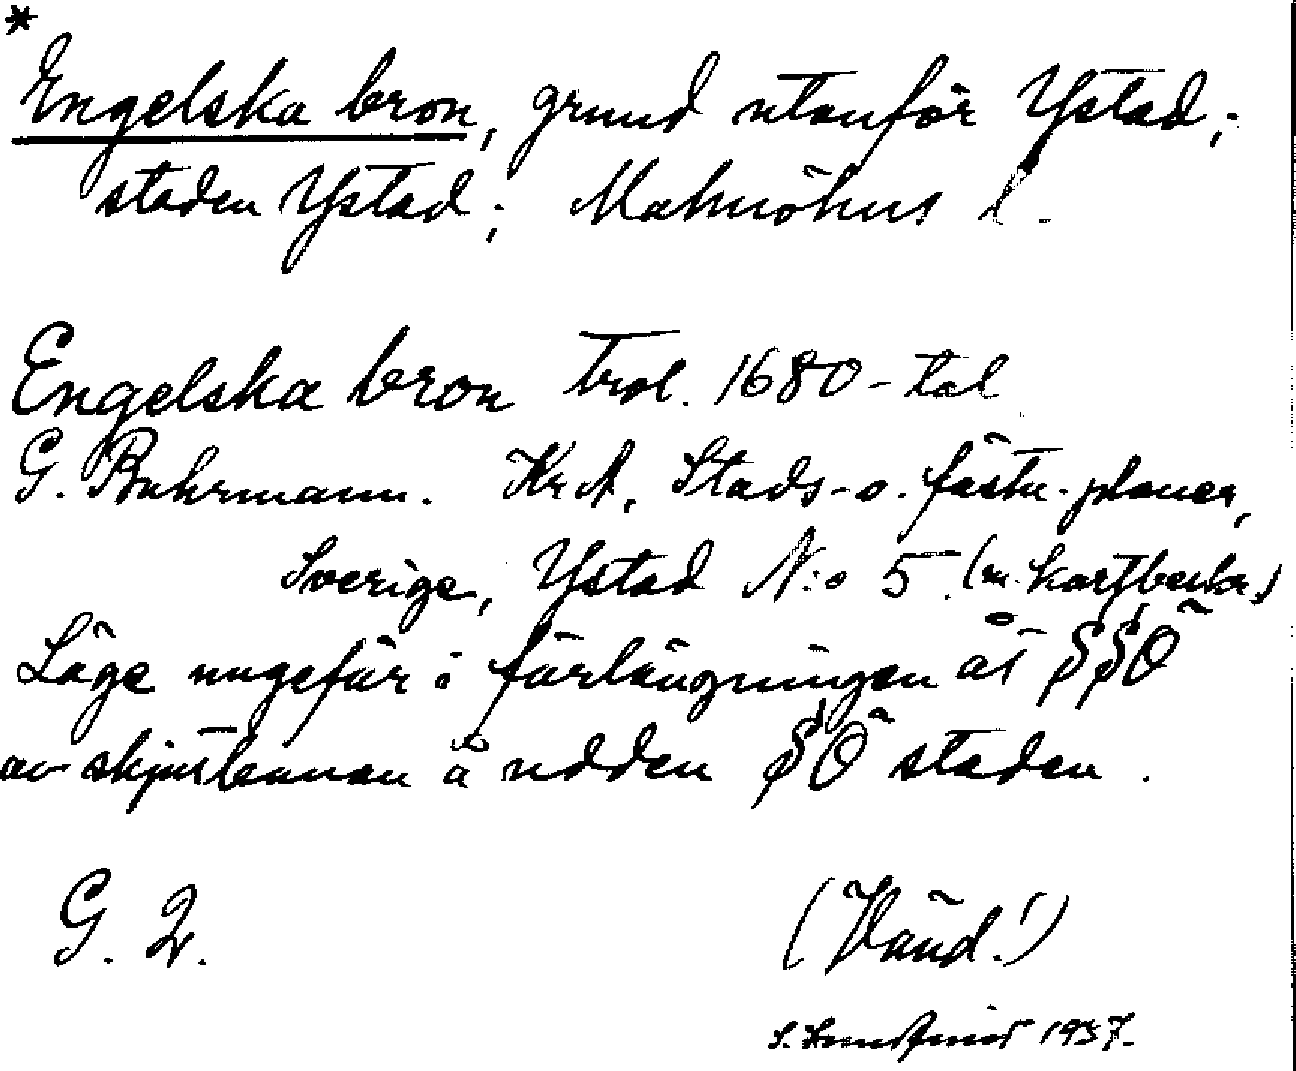 *
Engelska bron, grund utanför Ystad;
staden Ystad; Malmöhus l.
Engelska bron trol. 1680-tal
G. Buhrmann. KrA, Stads- o. fästn.-planer,
Sverige, Ystad N:o 5. (m. kartbeskr.)
Läge ungefär i förlängningen åt SSÖ
av skjutbanan å udden SÖ staden.
G. 2.
(Vänd!)
S. 1937.